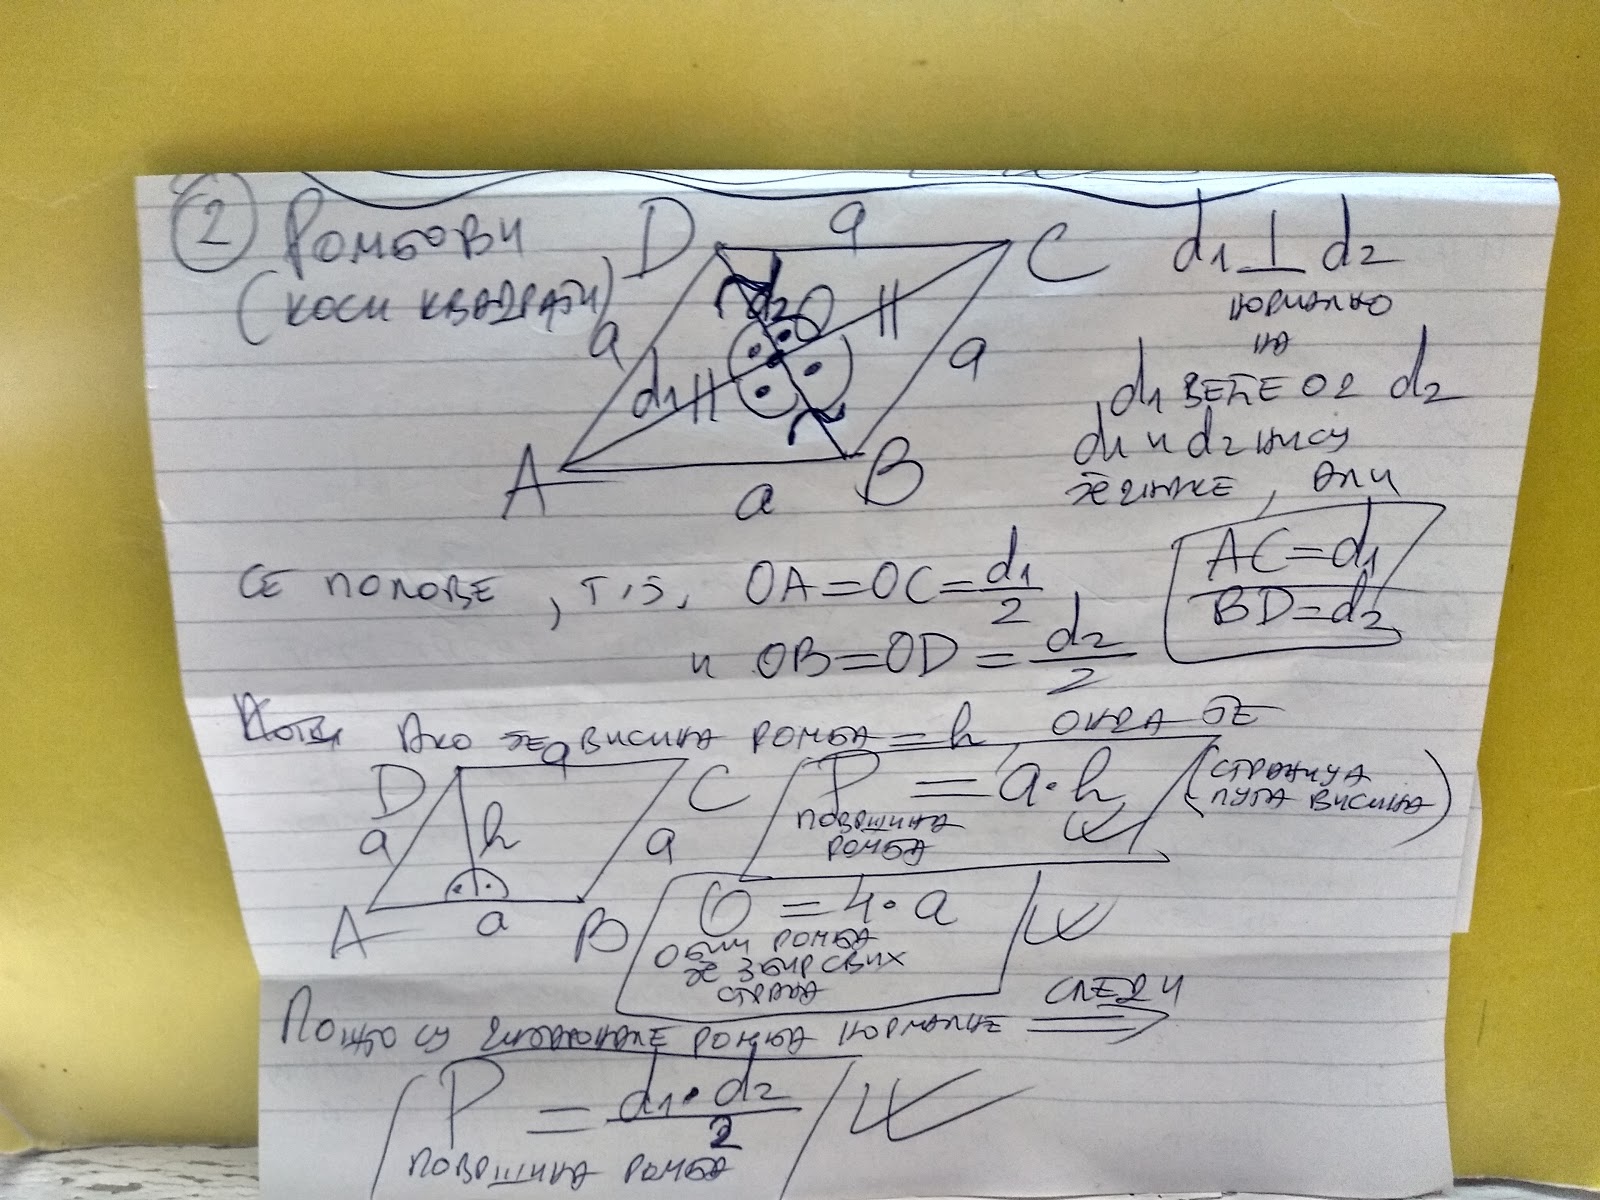 2 Ромбови
(коси квадрати)
D a C
a d2 O a
d1
A a B
d1 ⊥ d2
нормално
на
d1 веће од d2
d1 и d2 нису
једнаке, али
се полове, тј. OA=OC=d1/2
и OB=OD=d2/2
AC=d1
BD=d2
Ако је висина ромба = h, онда је
D a C
a h a
A a B
P = a·h (страница
пута висина)
површина
ромба
O = 4·a
обим ромба
је збир свих
страна
Пошто су дијагонале ромба нормалне следи ⟹
P = d1·d2/2
површина ромба